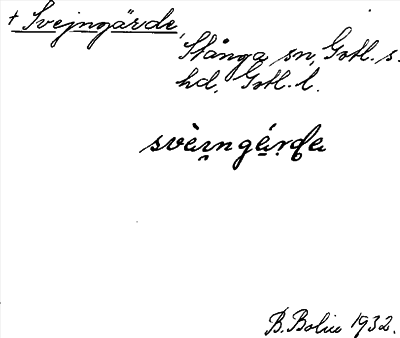 + Svejngärde,
Stånga sn, Gotl. s.
hd, Gotl. l.
svèi̯ngä́rde
B. Bolin 1932.